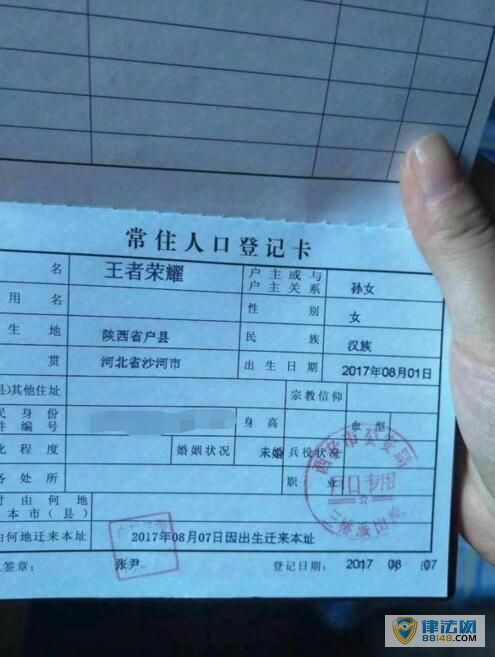 常住人口登记卡
名 王者荣耀 户主或与户主关系 孙女
用名 性别 女
生地 陕西省户县 民族 汉族
贯 河北省沙河市 出生日期 2017年08月01日
县)其他住址 宗教信仰
民身份
件编号 身高 血型
化程度 婚姻状况 未婚 兵役状况
务处所 职业
时由何地
本市(县)
何地迁来本址 2017年08月07日因出生迁来本址
人签章: 张尹 登记日期: 2017 08 07
西安市公安局
三桥派出所
律法网
88148.COM